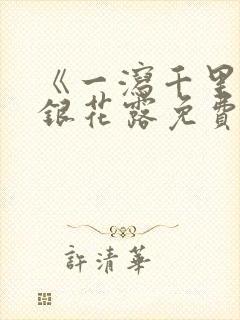 《一瀉千里
銀花露免費
許清華